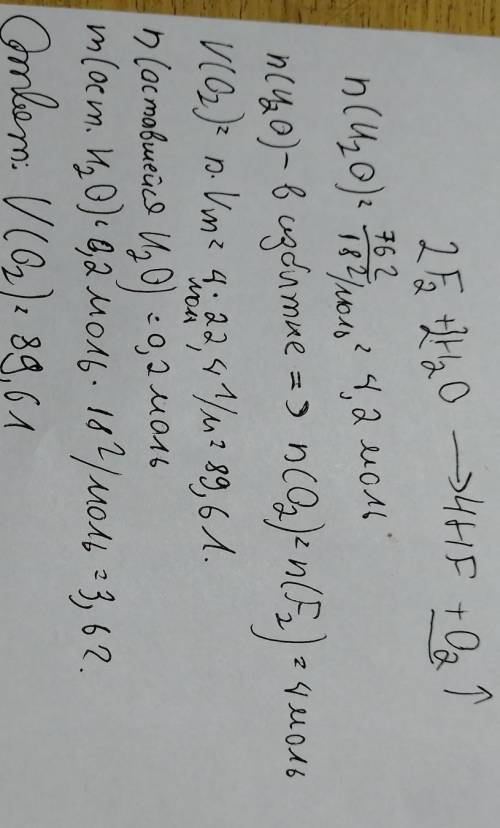 2F₂ + 2H₂O ⟶ 4HF + O₂↑
n(H₂O) = 76г / 18г/моль = 4,2 моль.
n(H₂O) - в избытке => n(O₂) = n(F₂) = 4 моль
V(O₂) = n·Vm = 4 моль · 22,4 л/м = 89,6 л.
n(оставшейся H₂O) = 0,2 моль
m(ост. H₂O) = 0,2 моль · 18г/моль = 3,6г.
Ответ: V(O₂) = 89,6 л